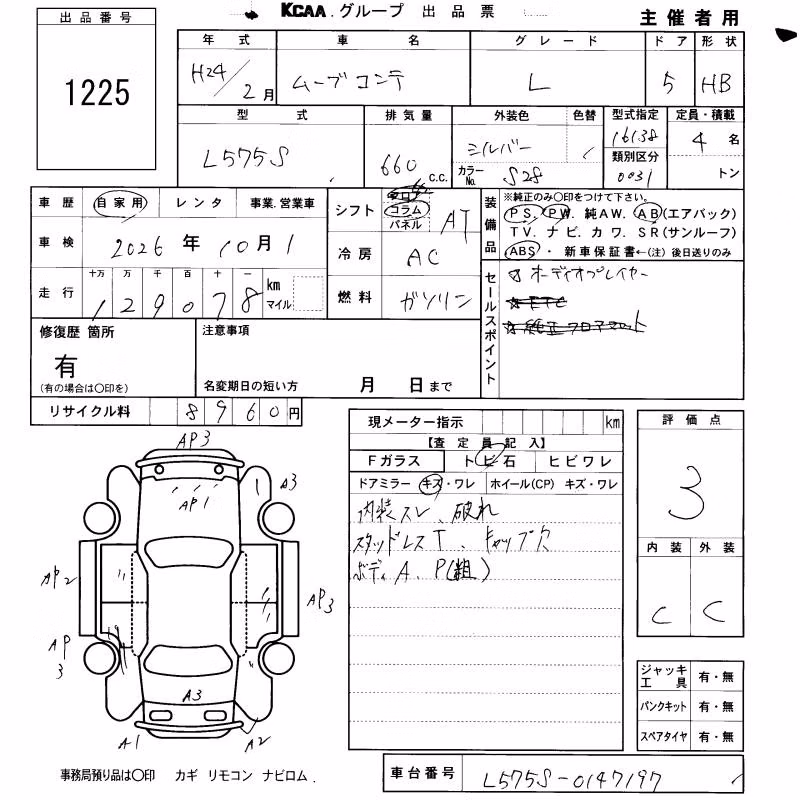 KCAA.グループ 出品票
主催者用
出品番号
1225
年式 車名 グレード ドア 形状
H24/2月 ムーブコンテ L 5 HB
型式 排気量 外装色 色替 型式指定 定員・積載
L575S 660 c.c. シルバー 16138 4名
カラーNo. S28 類別区分 0031 トン
車歴 自家用 レンタ 事業.営業車
車検 2026年10月1
走行 十万 万 千 百 十 一
129078 km マイル
シフト フロア コラム パネル AT
冷房 AC
燃料 ガソリン
装備品
※純正のみ〇印をつけて下さい。
PS. PW. 純AW. AB(エアバック)
TV. ナビ. カワ. SR(サンルーフ)
ABS・ 新車保証書←(注)後日送りのみ
セールスポイント
☆オーディオプレイヤー
☆ETC
☆純正フロアマット
修復歴 箇所
有
(有の場合は〇印を)
注意事項
名変期日の短い方 月 日まで
リサイクル料 8960円
現メーター指示 km
【査定員記入】
Fガラス トビ石 ヒビワレ
ドアミラー キズ・ワレ ホイール(CP) キズ・ワレ
内装スレ、破れ
スタッドレスT、キャップ穴
ボディA、P(粗)
評価点
3
内装 外装
C C
AP3
AP1
A3
AP2
AP3
AP3
A3
A1
A2
ジャッキ工具 有・無
パンクキット 有・無
スペアタイヤ 有・無
事務局預り品は〇印 カギ リモコン ナビロム.
車台番号 L575S-0147197